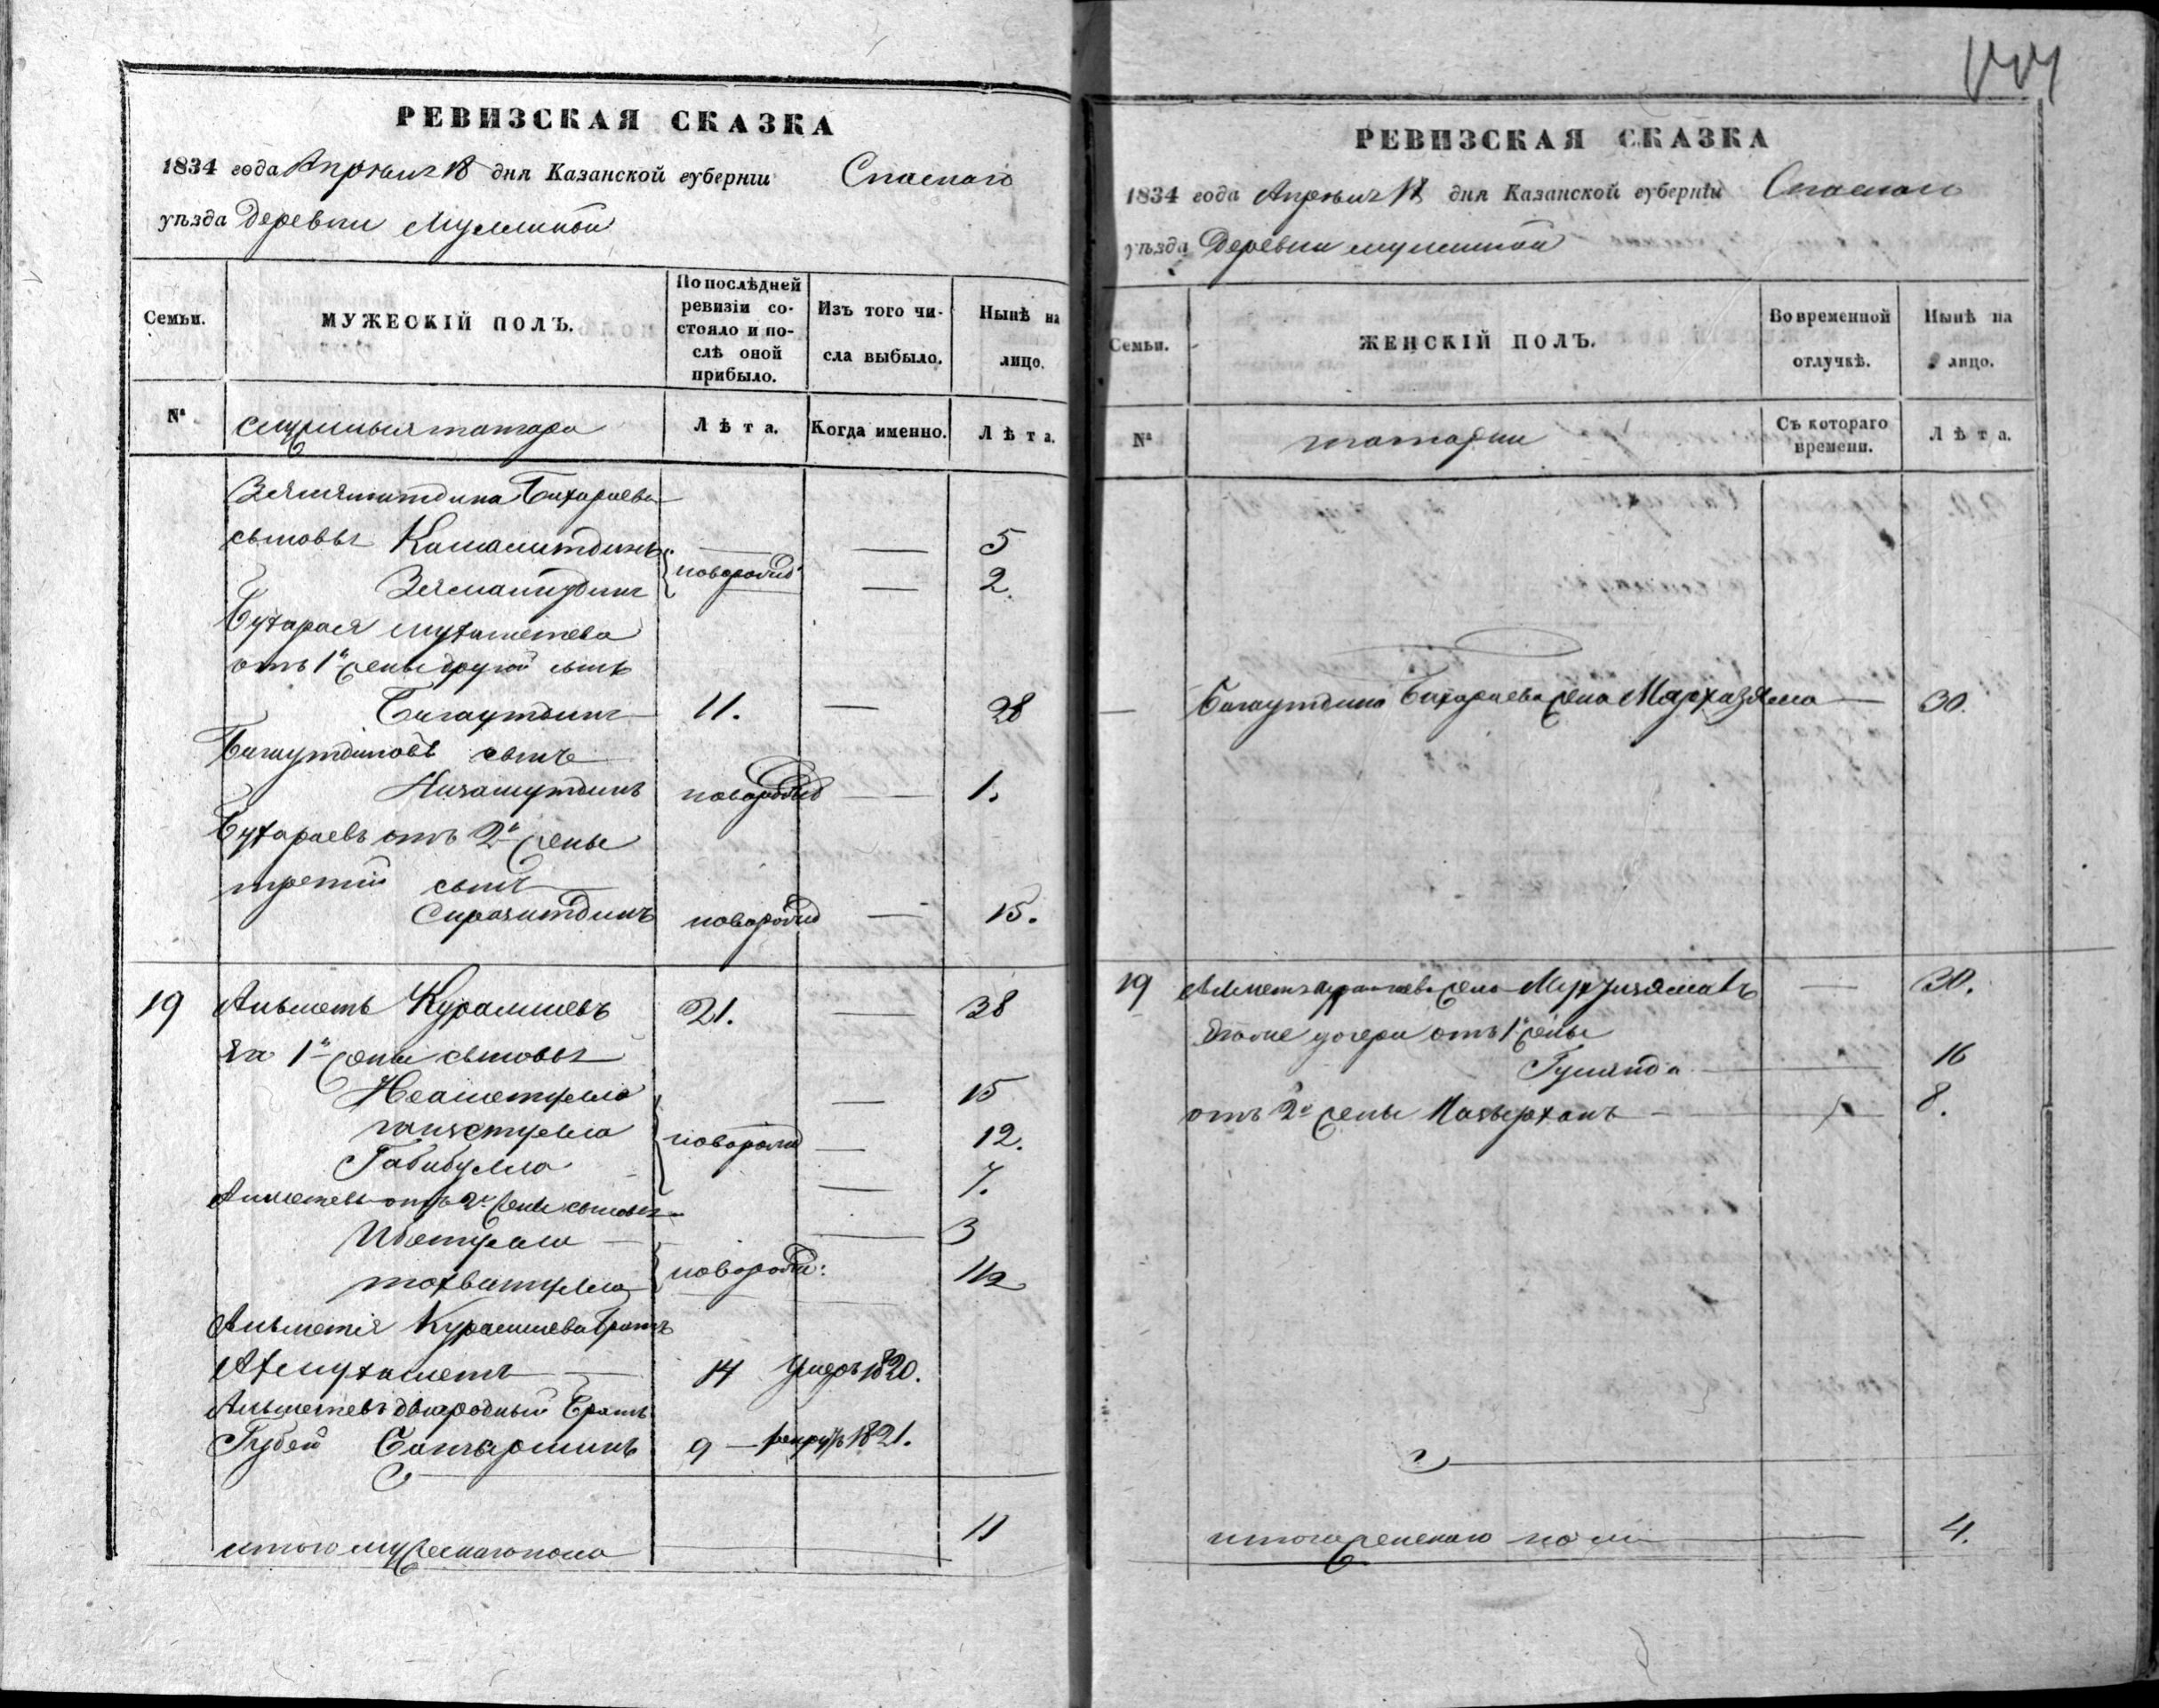 РЕВИЗСКАЯ СКАЗКА
1834 года Апреля 18 дня Казанской губерніи Спаскаго
уѣзда Деревни Муллиной
Семьи.
МУЖЕСКІЙ ПОЛЪ.
По послѣдней ревизіи состояло и послѣ оной прибыло.
Изъ того числа выбыло.
Нынѣ на лицо.
№
служилыя татара
Лѣта.
Когда именно.
Лѣта.
Бухараева
сыновья Камалитдинъ — — 5
новорожд
— 2.
Бухарая Мухаметева
отъ 1й жены другой сынъ
Багаутдинъ 11. — 28
Багаутдиновъ сынъ
Низамутдинъ новорожд — 1.
Бухараевъ отъ 2й жены
третий сынъ
Сиразитдинъ новорожд — 15.
19 Альметь Курамшевъ 21. — 38
1й жены сыновья
Неаметулла — 15
новорожд — 12.
Габибулла — 7.
Альметевы отъ 2й жены сыновья
— 3
Тохватулла новорожд: 1/2
Альметія Курамшева братъ
Ахмухаметь — 14 умеръ 1820.
Альметевъ двародный братъ
Губей 9 — рекрутъ 1821.
итого мужескаго пола 11
РЕВИЗСКАЯ СКАЗКА
1834 года Апреля 18 дня Казанской губерніи Спаскаго
уѣзда Деревни Муллиной
Семьи.
ЖЕНСКІЙ ПОЛЪ.
Во временной отлучкѣ.
Нынѣ на лицо.
№
татарки
Съ котораго времени.
Лѣта.
— Багаутдина Бухараева жена — 30.
19 жена — 30.
дочери отъ 1й жены
16
отъ 2й жены — 8.
итого женскаго пола — 4.